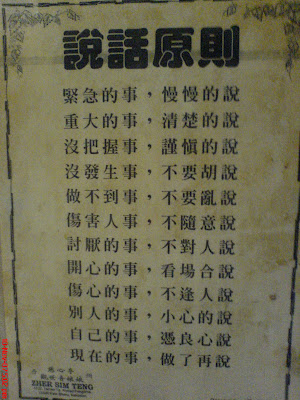 說話原則
緊急的事，慢慢的說
重大的事，清楚的說
沒把握事，謹慎的說
沒發生事，不要胡說
做不到事，不要亂說
傷害人事，不隨意說
討厭的事，不對人說
開心的事，看場合說
傷心的事，不逢人說
別人的事，小心的說
自己的事，憑良心說
現在的事，做了再說
ZHER SIM TENG